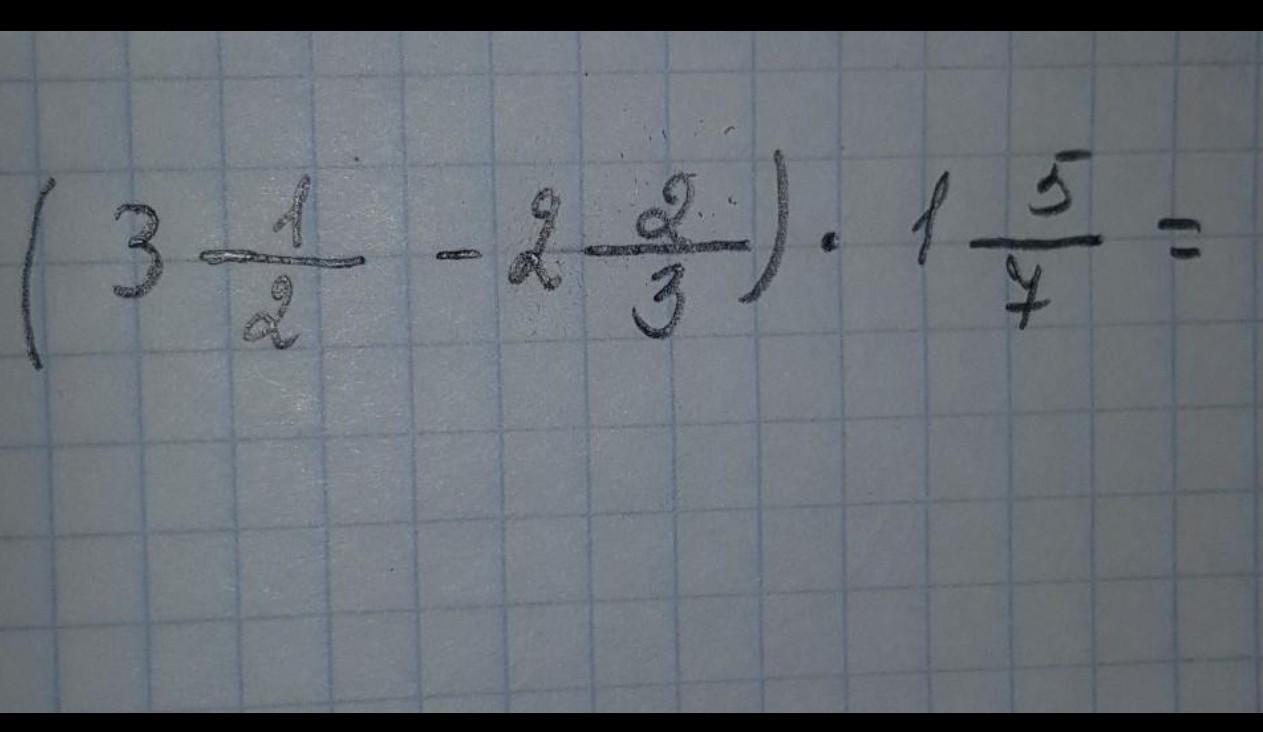 (3 1/2 - 2 2/3) · 1 5/7 =